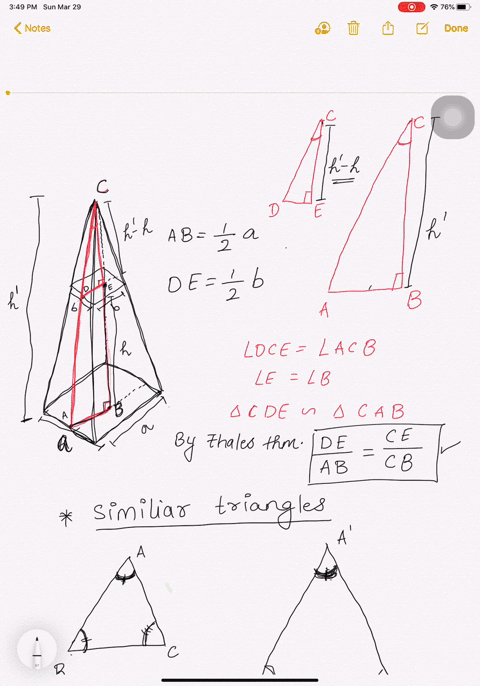 3:49 PM Sun Mar 29
76%
Notes
Done
C
h'-h
h'
D
E
b
b
h
A
B
a
a
AB = 1/2 a
DE = 1/2 b
C
h'-h
D
E
C
h'
A
B
∠DCE = ∠ACB
∠E = ∠B
△CDE ∽ △CAB
By Thales thm. DE/AB = CE/CB
* Similiar triangles
A
B
C
A'